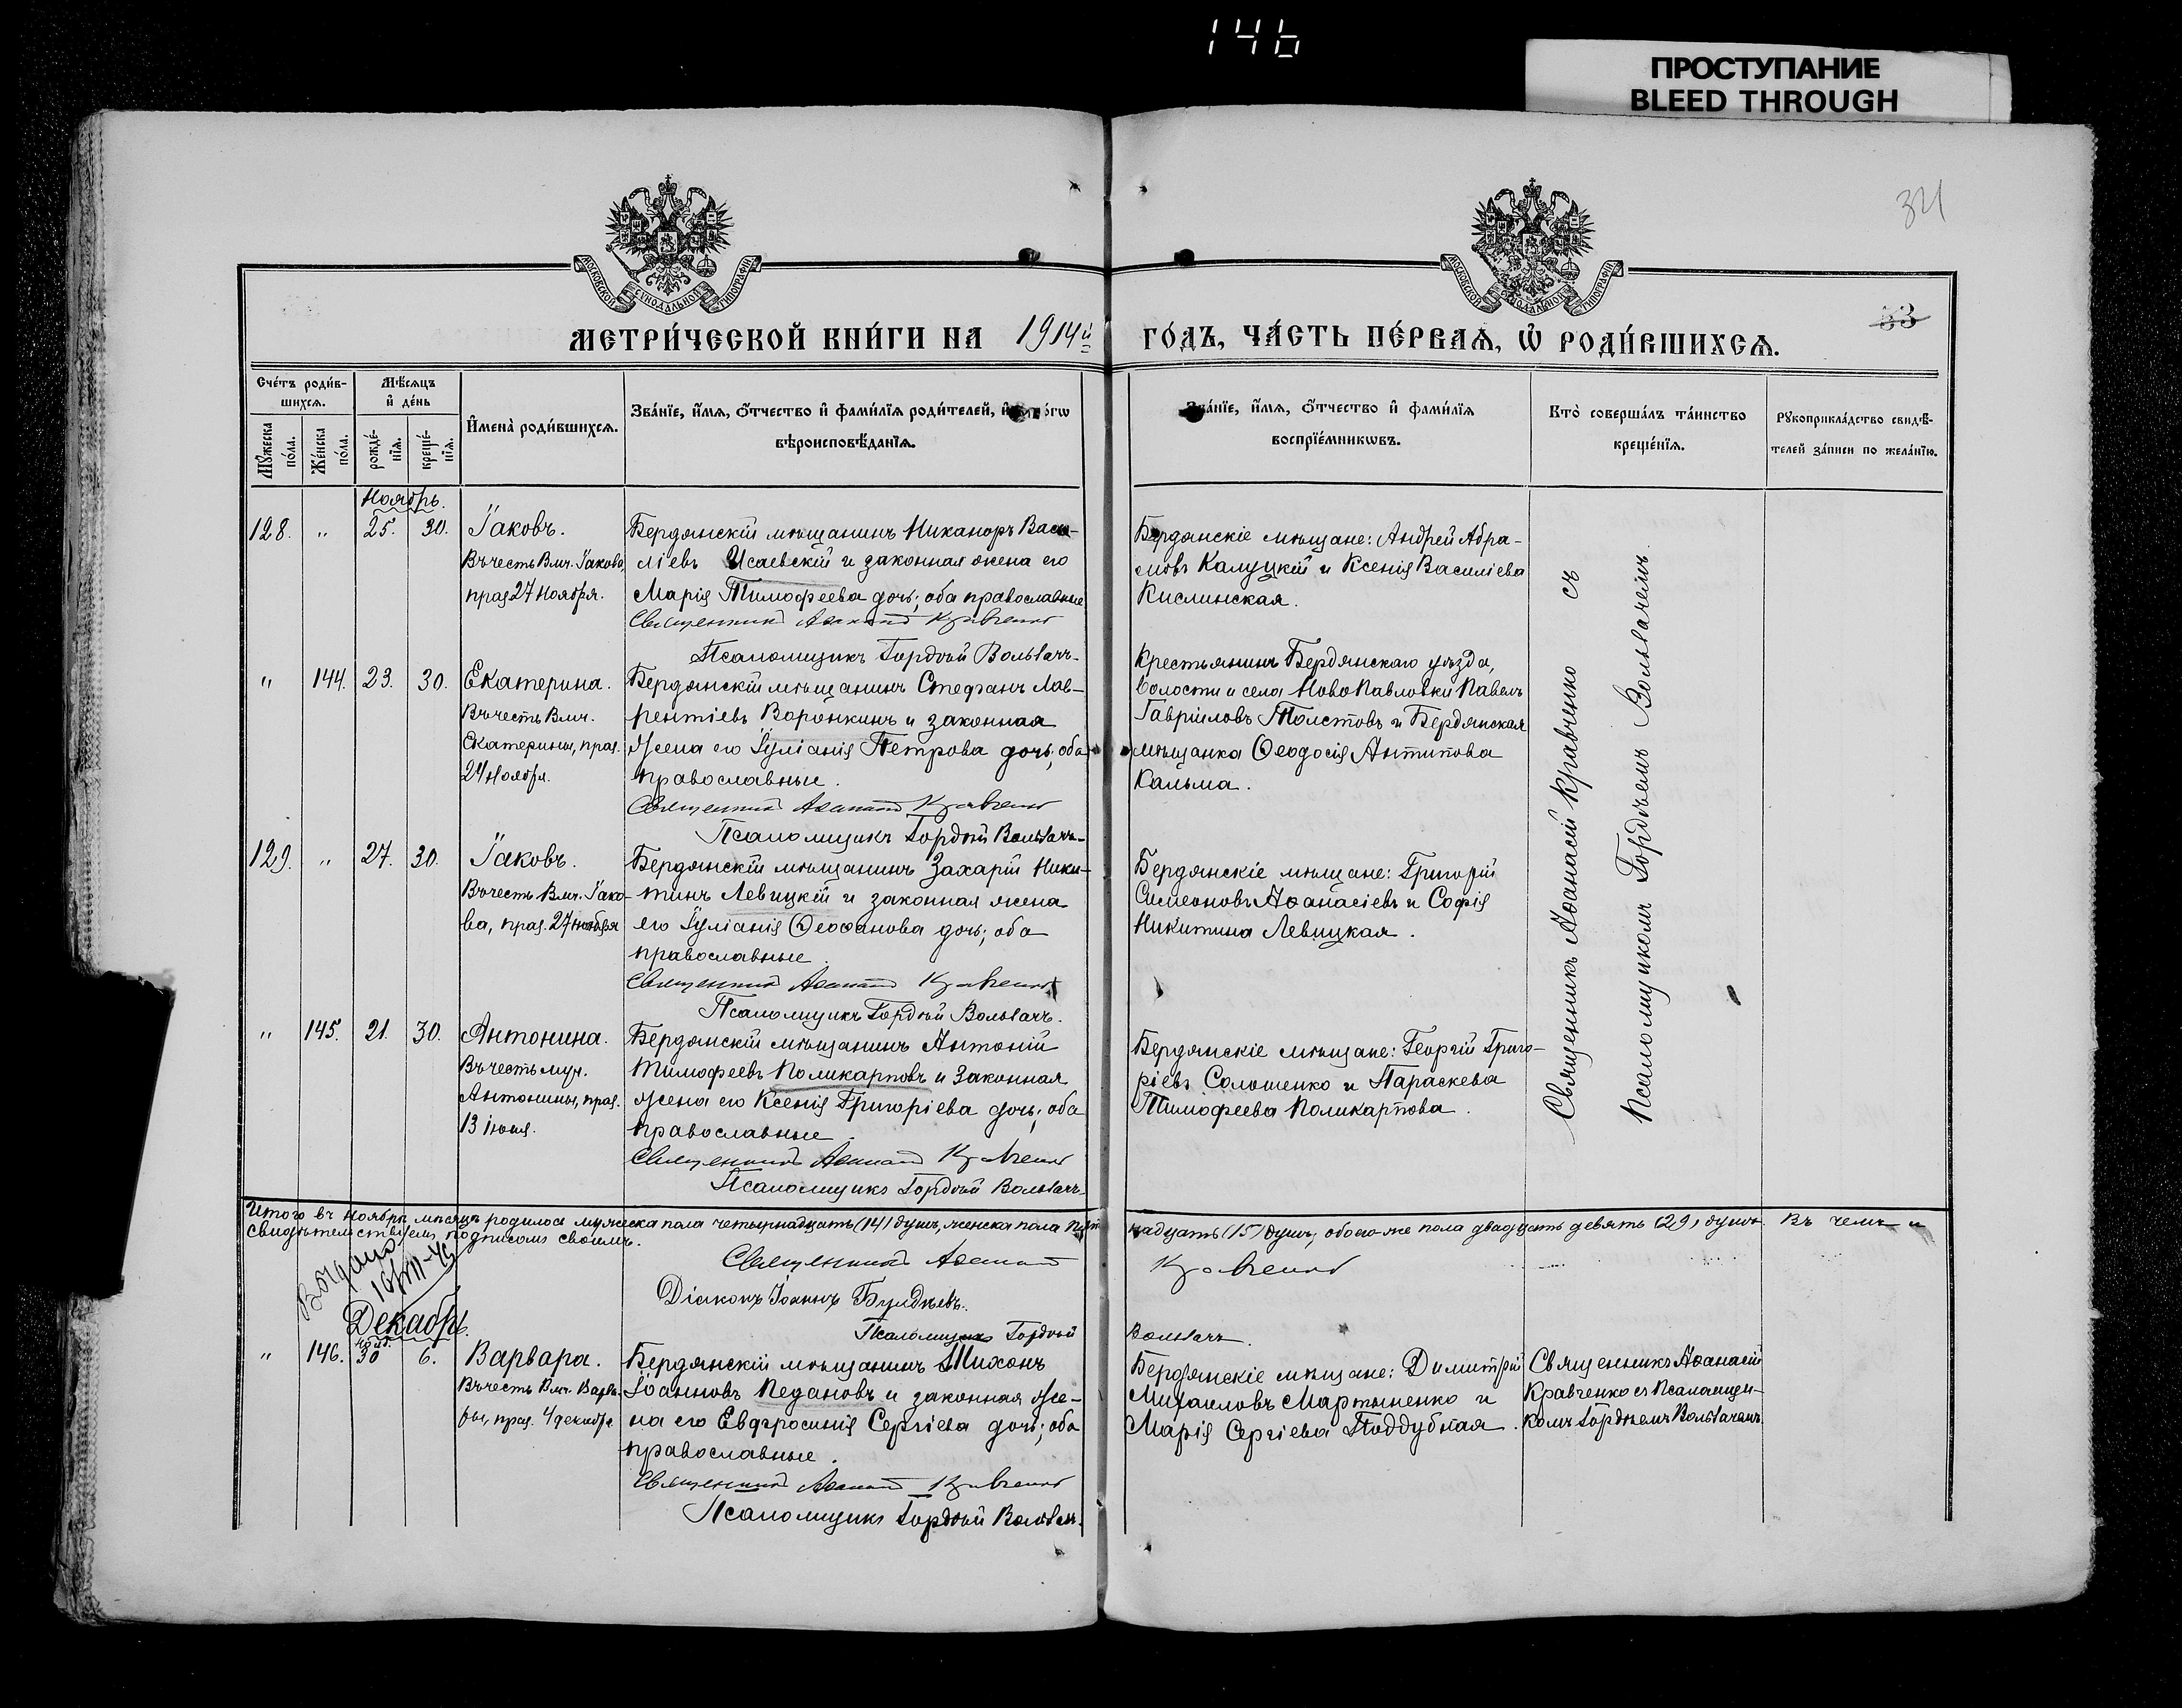 146
ПРОСТУПАНИЕ
BLEED THROUGH
34
МОСКОВСКОЙ СѴНОДАЛЬНОЙ ТИПОГРАФІИ
МОСКОВСКОЙ СѴНОДАЛЬНОЙ ТИПОГРАФІИ
33
МЕТРИ́ЧЕСКОЙ КНИ́ГИ НА 1914й ГО́ДЪ, ЧА́СТЬ ПЕ́РВАѦ, Ѡ РОДИ́ВШИХСѦ.
Сче́тъ роди́в-
шихсѧ.
Мꙋжеска по́ла.
Же́нска по́ла.
Мѣ́сѧцъ
и҆ де́нь
рожде́-
нїѧ.
креще́-
нїѧ.
И҆мена̀ роди́вшихсѧ.
Зва́нїе, и҆́мѧ, ѻ҆́тчество и҆ фами́лїѧ роди́телей, и҆
вѣроисповѣ́данїѧ.
Зва́нїе, и҆́мѧ, ѻ҆́тчество и҆ фами́лїѧ
воспрїе́мникѡвъ.
Кто̀ соверша́лъ та́инство
креще́нїѧ.
Рꙋкоприкла́дство свидѣ́-
телей за́писи по жела́нїю.
Ноябрь.
128. " 25. 30. Іаковъ.
Въ честь Вмч. Іакова,
праз 27 Ноября.
Бердянскій мѣщанинъ Никаноръ Васи-
ліевъ Исаевскій и законная жена его
Марія Тимофеева дочь; оба православные
Священникъ Аѳанасій Кравченко
Псаломщикъ Гордѣй Вольвачъ.
Бердянскіе мѣщане: Андрей Абра-
мовъ Калуцкій и Ксенія Василіева
Кислинская.
" 144. 23. 30. Екатерина.
Въ честь Вмч.
Екатерины, праз.
24 Ноября.
Бердянскій мѣщанинъ Стефанъ Лав-
рентіевъ Воронкинъ и законная
жена его Іуліанія Петрова дочь; оба
православные.
Священникъ Аѳанасій Кравченко
Псаломщикъ Гордѣй Вольвачъ.
Крестьянинъ Бердянскаго уѣзда,
волости и села НовоПавловки Павелъ
Гавріиловъ Толстовъ и Бердянская
мѣщанка Ѳеодосія Антипова
Кальма.
129. " 27. 30. Іаковъ.
Въ честь Вмч. Іако-
ва, праз. 27 ноября
Бердянскій мѣщанинъ Захарій Ники-
тинъ Левицкій и законная жена
его Іуліанія Ѳеофанова дочь; оба
православные.
Священникъ Аѳанасій Кравченко
Псаломщикъ Гордѣй Вольвачъ.
Бердянскіе мѣщане: Григорій
Симеоновъ Аѳанасіевъ и Софія
Никитина Левицкая.
" 145. 21. 30. Антонина.
Въ честь муч.
Антонины, праз.
13 іюня.
Бердянскій мѣщанинъ Антоній
Тимофеевъ Поликарповъ и законная
жена его Ксенія Григоріева дочь; оба
православные.
Священникъ Аѳанасій Кравченко
Псаломщикъ Гордѣй Вольвачъ.
Бердянскіе мѣщане: Георгій Григо-
ріевъ Солошенко и Параскева
Тимофеева Поликарпова.
Священникъ Аѳанасій Кравченко съ
Псаломщикомъ Гордѣемъ Вольвачемъ
Итого въ ноябрѣ мѣсяцѣ родилось мужеска пола четырнадцать (14) душъ, женска пола пят-
надцать (15) душъ, обоего-же пола двадцать девять (29) душъ. Въ чемъ и
свидѣтельствуемъ подписомъ своимъ.
Священникъ Аѳанасій Кравченко
Діаконъ Іоаннъ
Псаломщикъ Гордѣй Вольвачъ
Декабрь.
" 146. нояб. 30 6. Варвара.
Въ честь Вмч. Варва-
ры, праз. 4 декабр.
Бердянскій мѣщанинъ Тихонъ
Іоанновъ Педановъ и законная же-
на его Евфросинія Сергіева дочь; оба
православные.
Священникъ Аѳанасій Кравченко
Псаломщикъ Гордѣй Вольвачъ.
Бердянскіе мѣщане: Димитрій
Михаиловъ Мартыненко и
Марія Сергіева Поддубная.
Священникъ Аѳанасій
Кравченко съ Псаломщи-
комъ Гордѣемъ Вольвачемъ